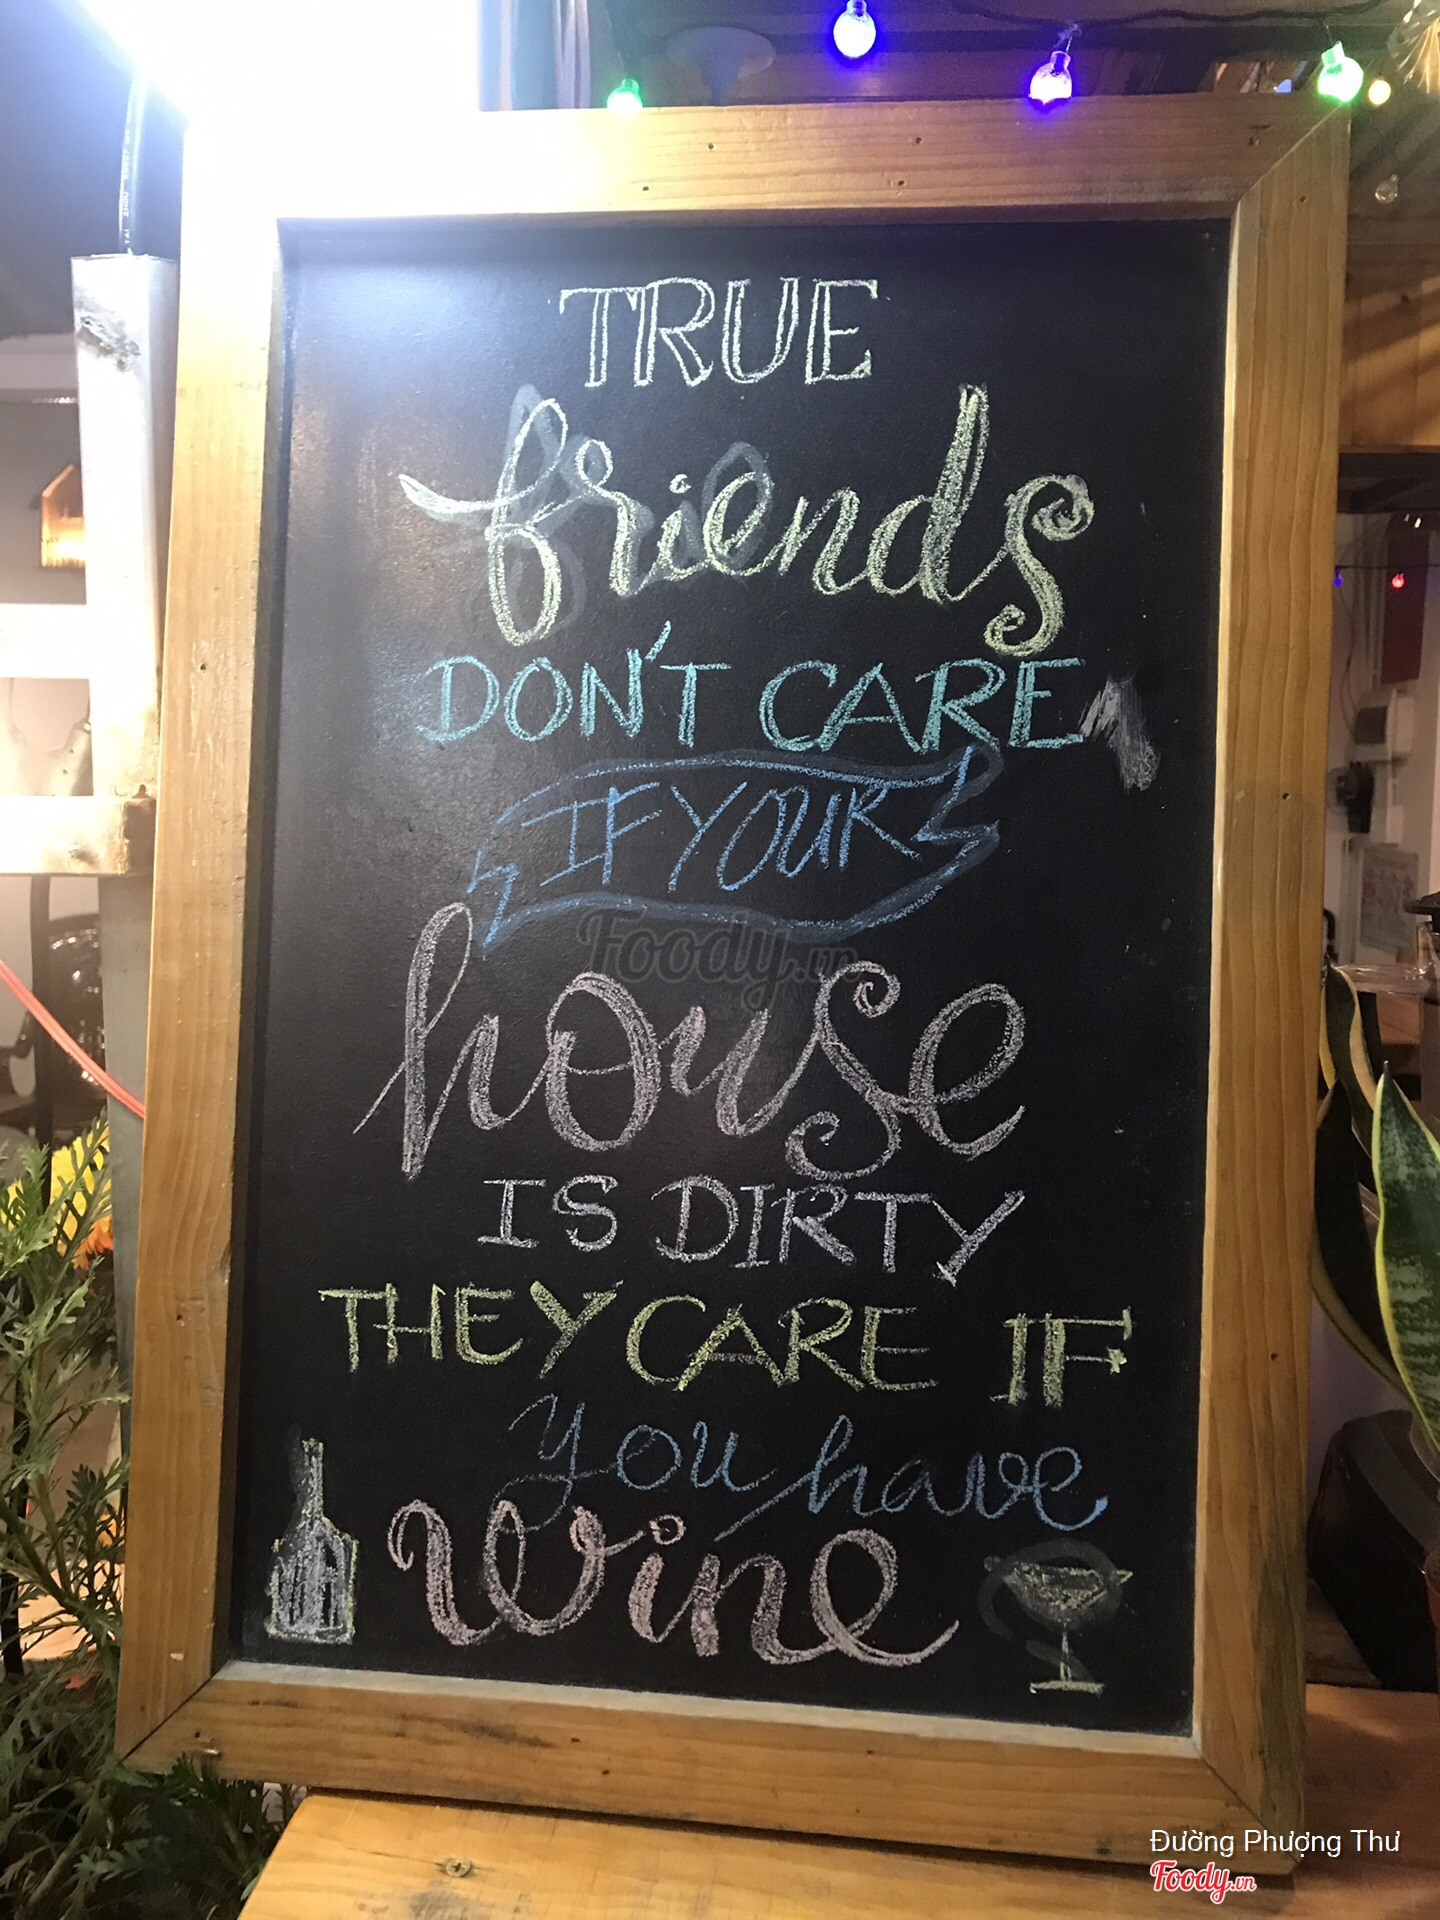 TRUE
friends
DON'T CARE
IF YOUR
house
IS DIRTY
THEY CARE IF
you have
wine
Foody.vn
Đường Phượng Thư
Foody.vn